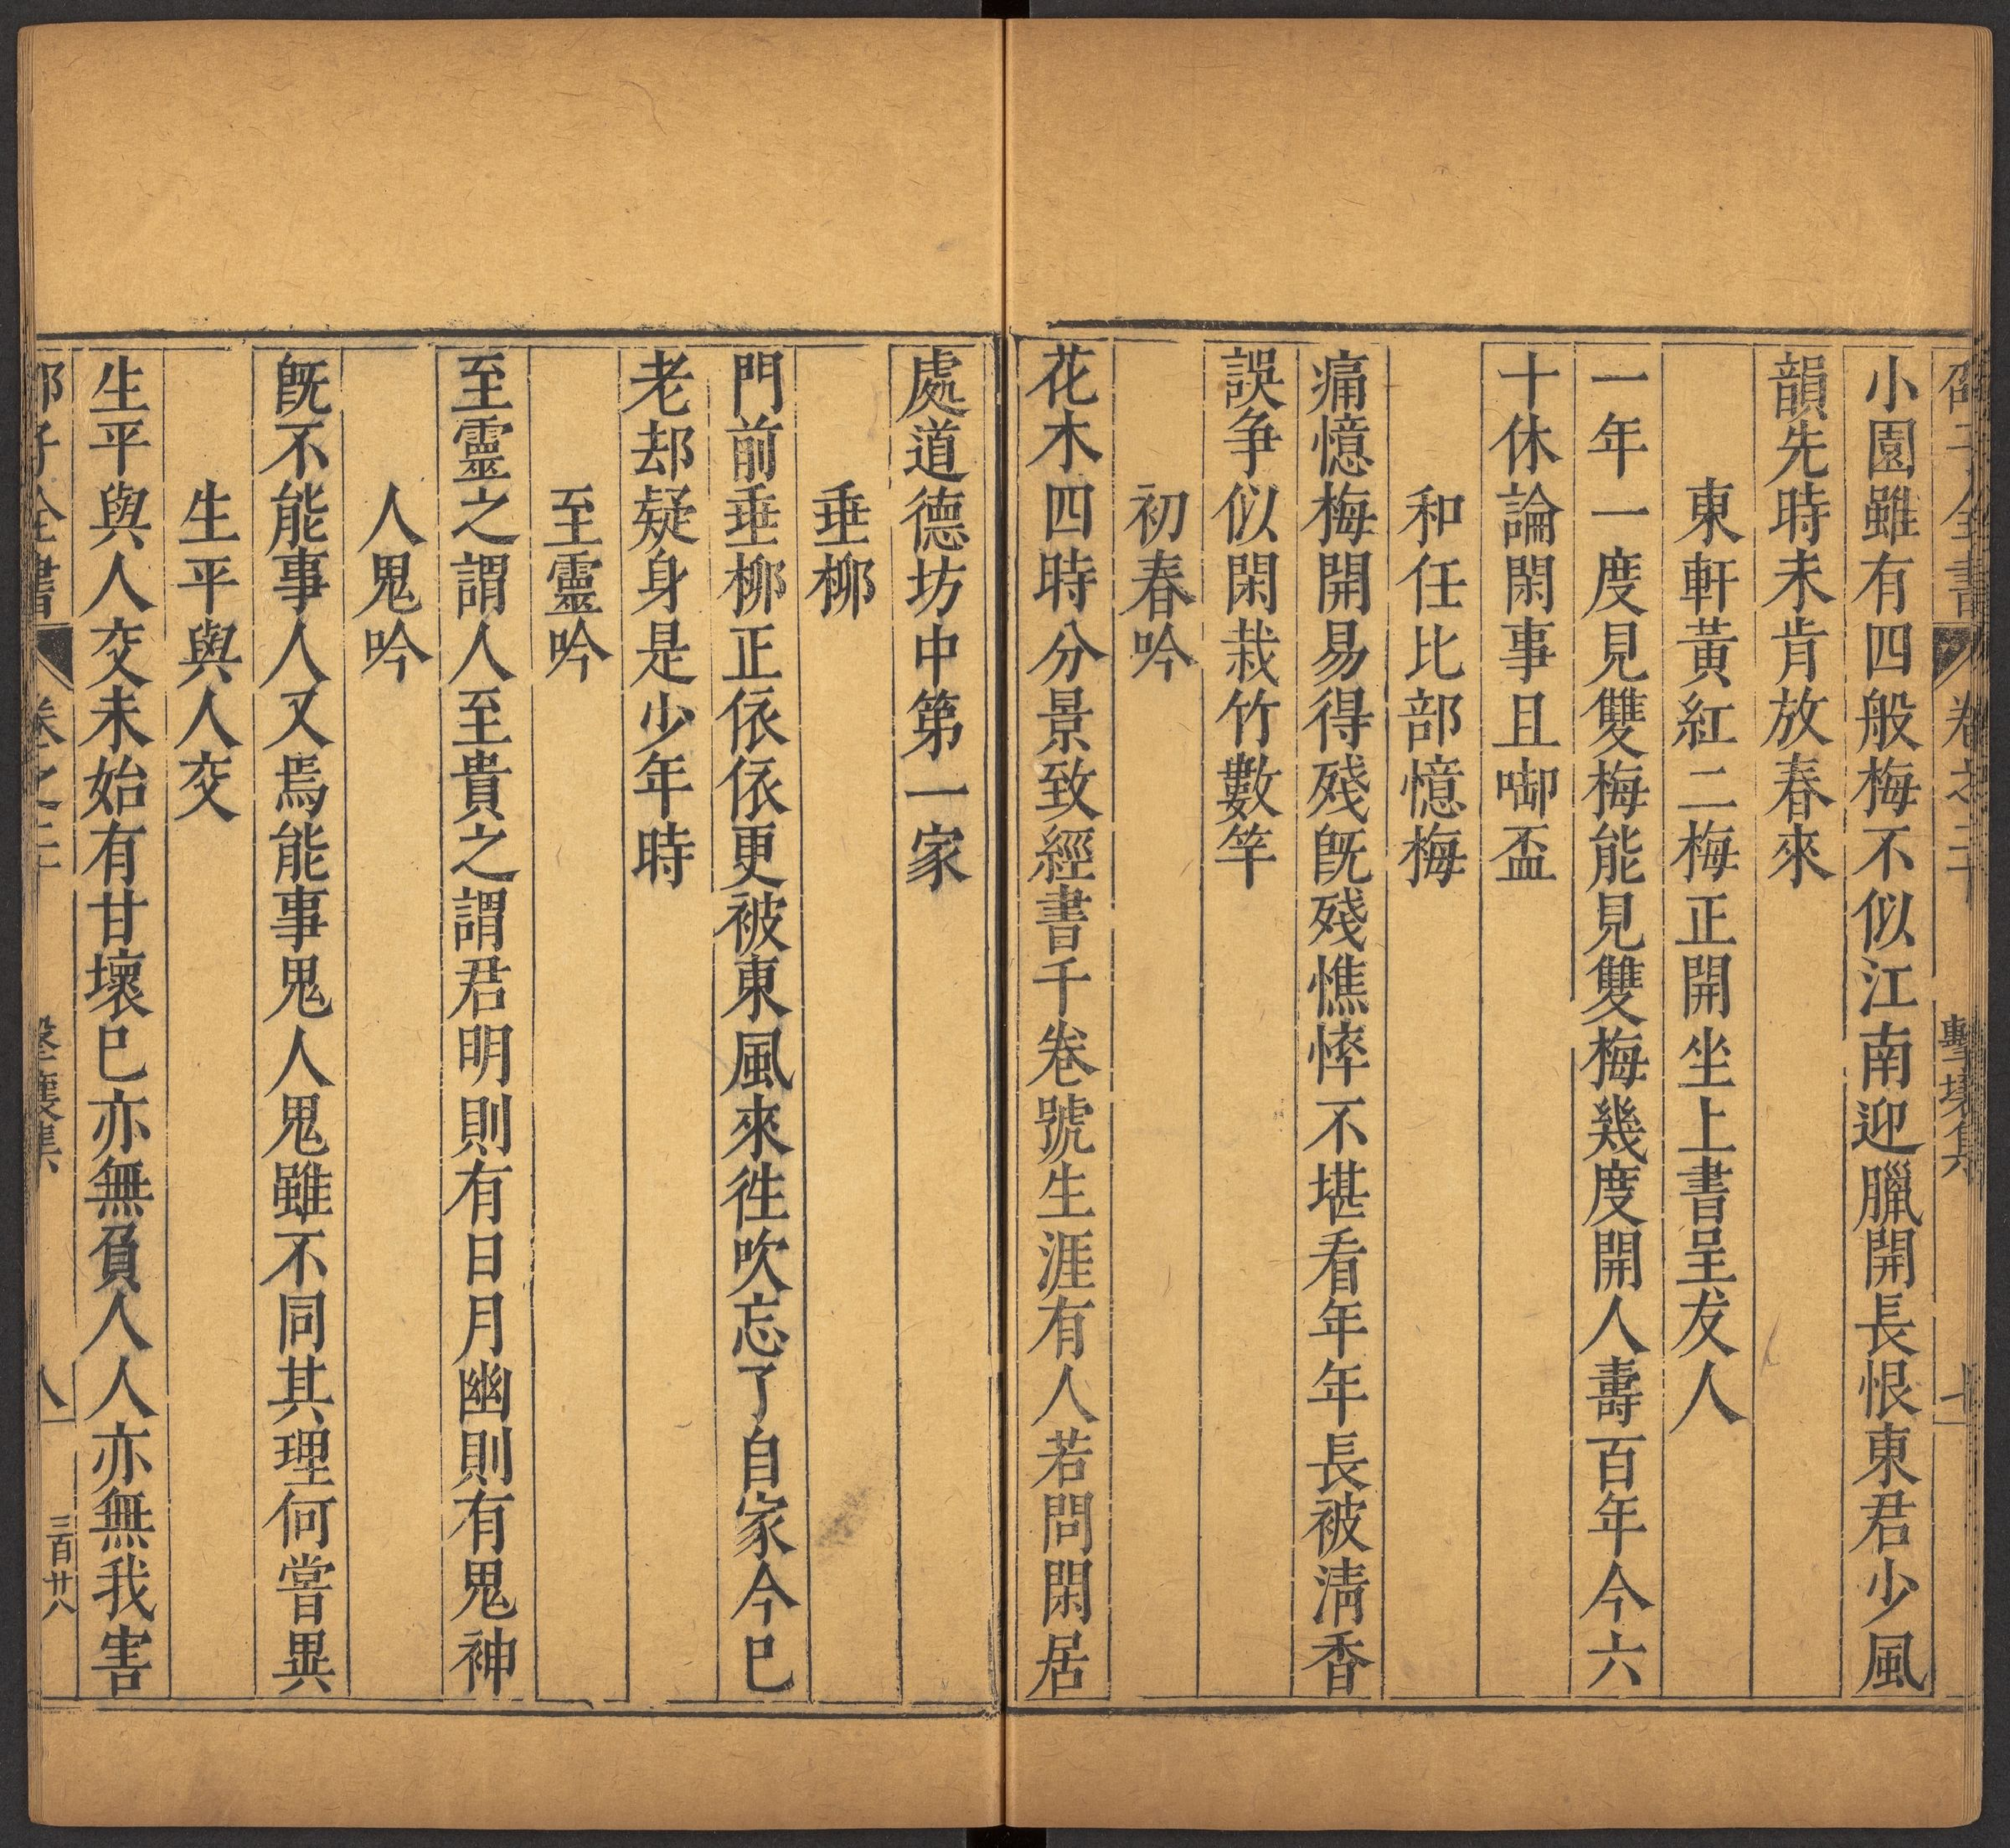 邵子全書 卷之二十 擊壤集 七
小園雖有四般梅不似江南迎臘開長恨東君少風
韻先時未肯放春來
東軒黃紅二梅正開坐上書呈友人
一年一度見雙梅能見雙梅幾度開人壽百年今六
十休論閑事且啣盃
和任比部憶梅
痛憶梅開易得殘旣殘憔悴不堪看年年長被清香
誤爭似閑栽竹數竿
初春吟
花木四時分景致經書千卷號生涯有人若問閑居
處道德坊中第一家
垂柳
門前垂柳正依依更被東風來徃吹忘了自家今巳
老却疑身是少年時
至靈吟
至靈之謂人至貴之謂君明則有日月幽則有鬼神
人鬼吟
旣不能事人又焉能事鬼人鬼雖不同其理何嘗異
生平與人交
生平與人交未始有甘壞巳亦無負人人亦無我害
邵子全書 卷之二十 擊壤集 八 三百廿八